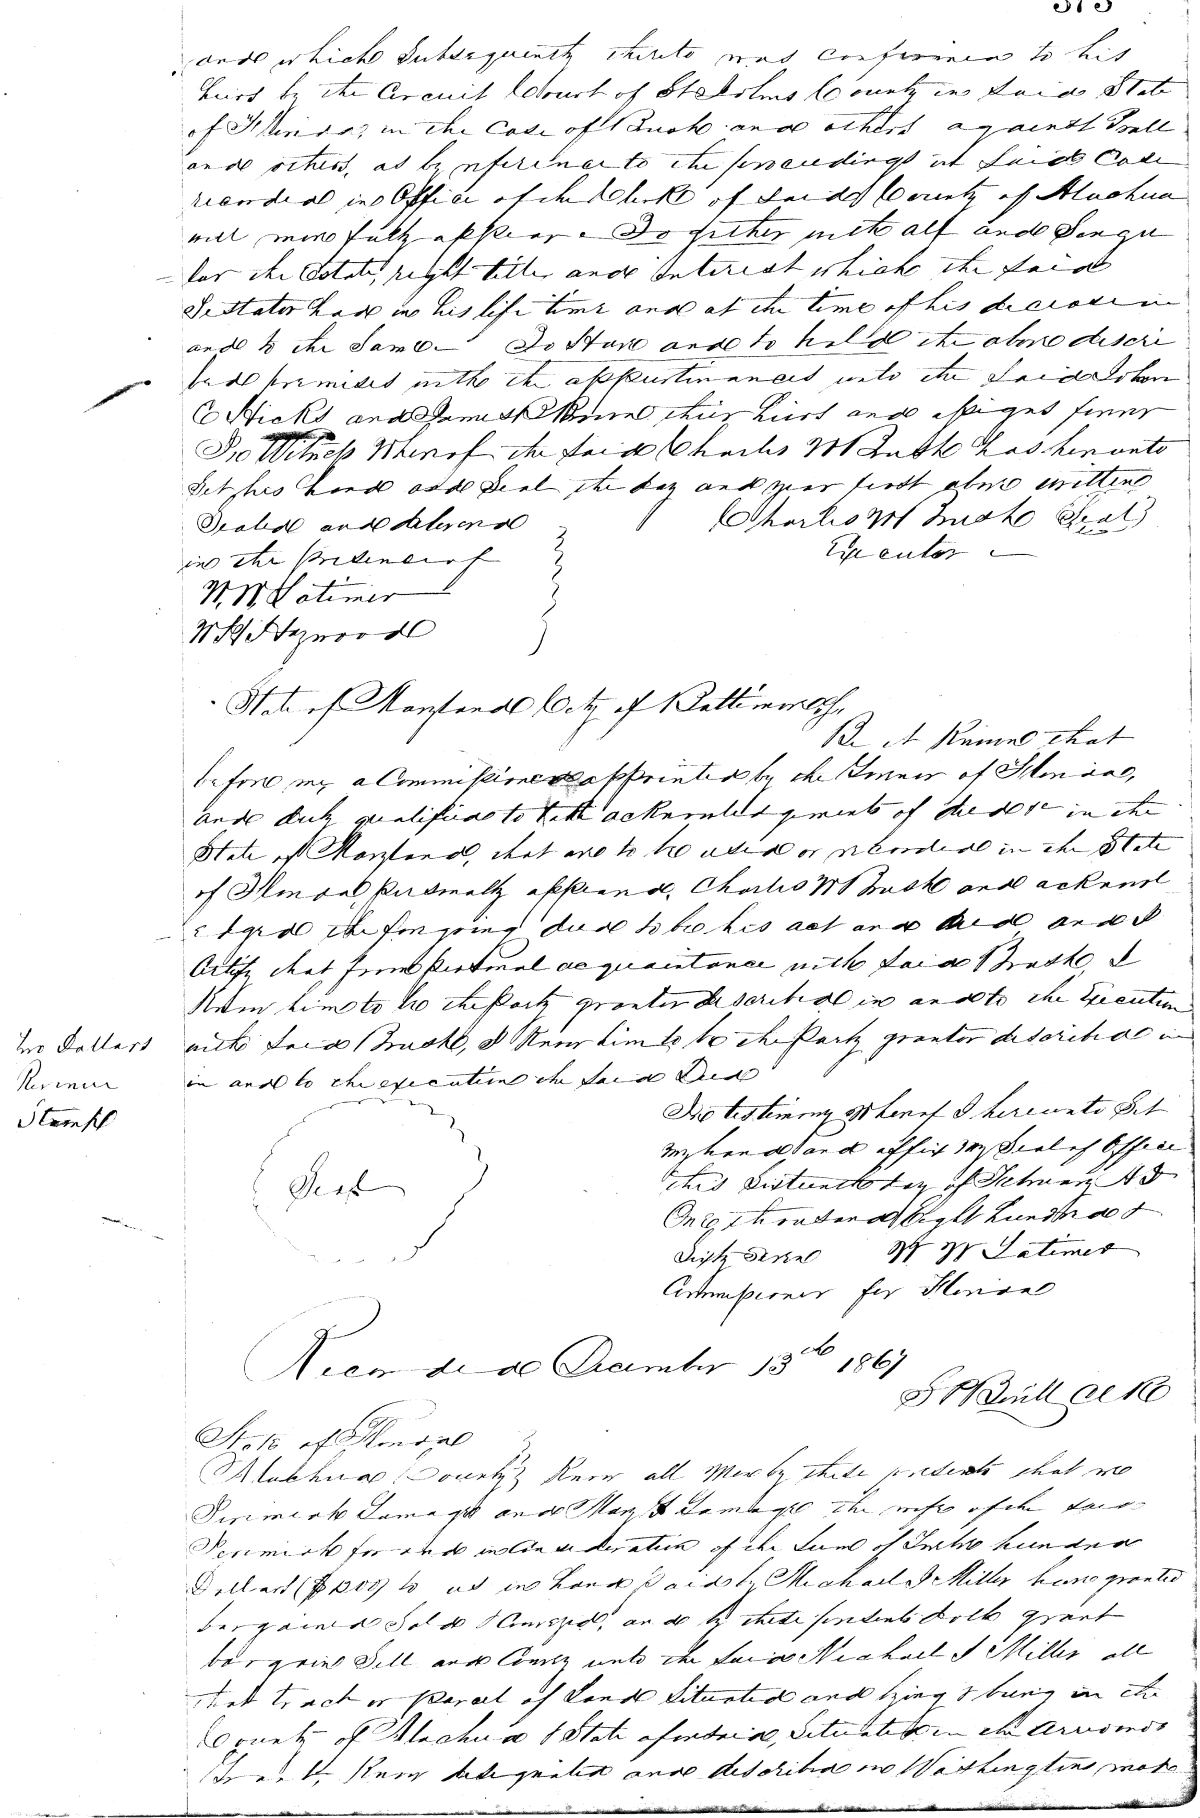 and which Subsequently thereto was confirmed to his
heirs by the Circuit Court of St Johns County in Said State
of Florida, in the Case of Brush and others against Hall
and others, as by reference to the proceedings in Said Case
recorded in Office of the Clerk of Said County of Alachua
will more fully appear. Together with all and Singu
lar the Estate, right title and interest which the Said
Testator had in his life time and at the time of his decease in
and to the Same. To Have and to hold the above descri
bed premises with the appurtenances unto the Said John
C Hicks and James their heirs and assigns forever
In Witness Whereof the Said Charles M Brush has hereunto
Set his hand and Seal the day and year first above written
Sealed and delivered Charles M Brush (Seal)
in the presence of Executor
W. W. Latimer
Haywood
State of Maryland City of Baltimore Sc.
Be it Known that
before me a Commissioner appointed by the Governor of Florida,
and duly qualified to take acknowledgements of deeds &c in the
State of Maryland, that are to be used or recorded in the State
of Florida personally appeared, Charles M Brush and acknowl
edged the foregoing deed to be his act and deed, and I
Certify that from personal acquaintance with Said Brush, I
Know him to be the party grantor described in and to the Execution
with Said Brush, I Know him to be the Party grantor described in
in and to the execution the Said Deed
Two Dollars
Revenue
Stamp
In testimony whereof I hereunto Set
my hand and affix my Seal of Office
this Sixteenth day of February A D
One thousand Eight hundred &
Sixty Seven W W Latimer
Commissioner for Florida
Seal
Recorded December 13th 1867
Clk
State of Florida
Alachua County Know all Men by these presents that we
Ramage and Mary Ramage the wife of the Said
for and in Consideration of the Sum of Twelve hundred
Dollars ($1200) to us in hand paid by Michael J Miller have granted
bargained Sold & Conveyed, and by these presents doth grant
bargain Sell and Convey unto the Said Michael J Miller all
that tract or parcel of Land Situated and lying & being in the
County of Alachua & State aforesaid, Situated in the Arredondo
Grant, Know designated and described in Washingtons map